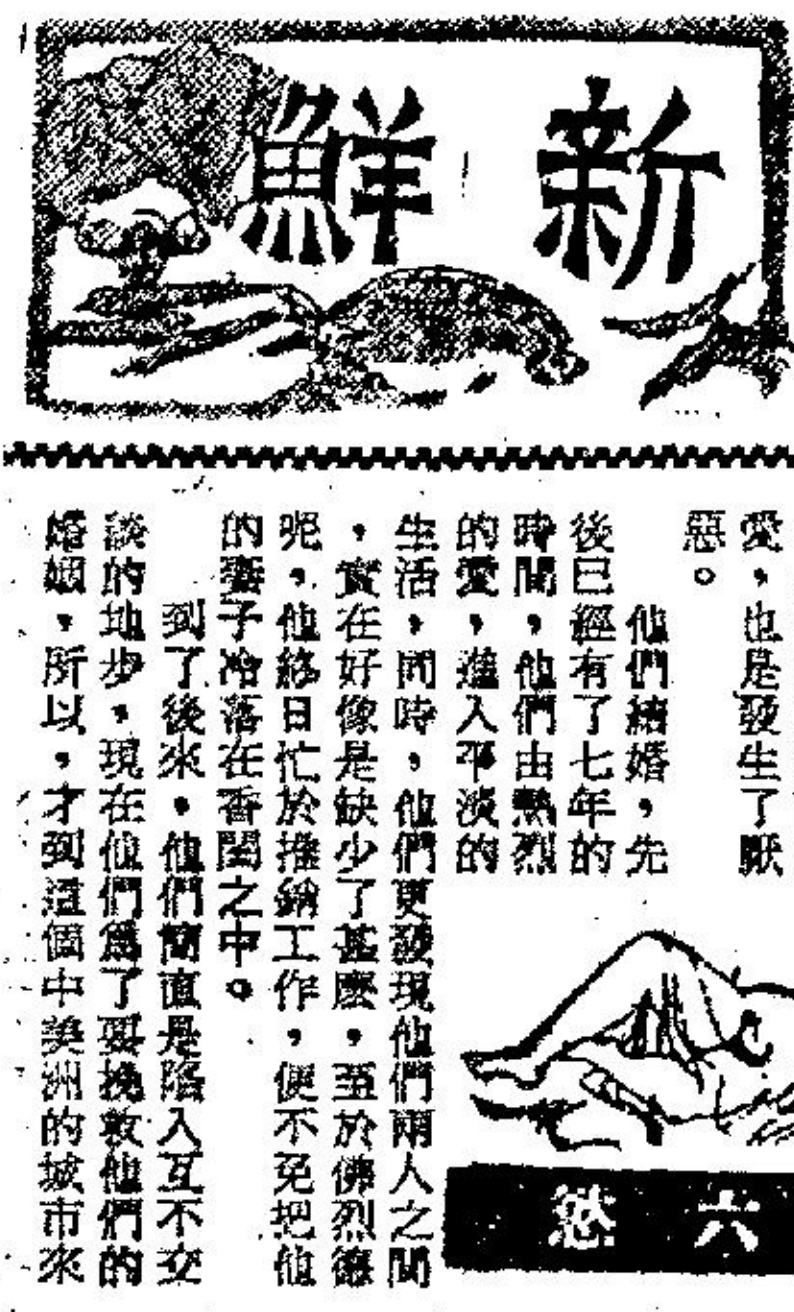 新鮮
愛，也是發生了厭
惡。
他們結婚，先
後已經有了七年的
時間，他們由熱烈
的愛，進入平淡的
生活，同時，他們更發現他們兩人之間
，實在好像是缺少了甚麼，至於佛烈德
呢，他終日忙於推銷工作，便不免把他
的妻子冷落在香閨之中。
到了後來，他們簡直是陷入互不交
談的地步，現在他們爲了要挽救他們的
婚姻，所以，才到這個中美洲的城市來
六慾